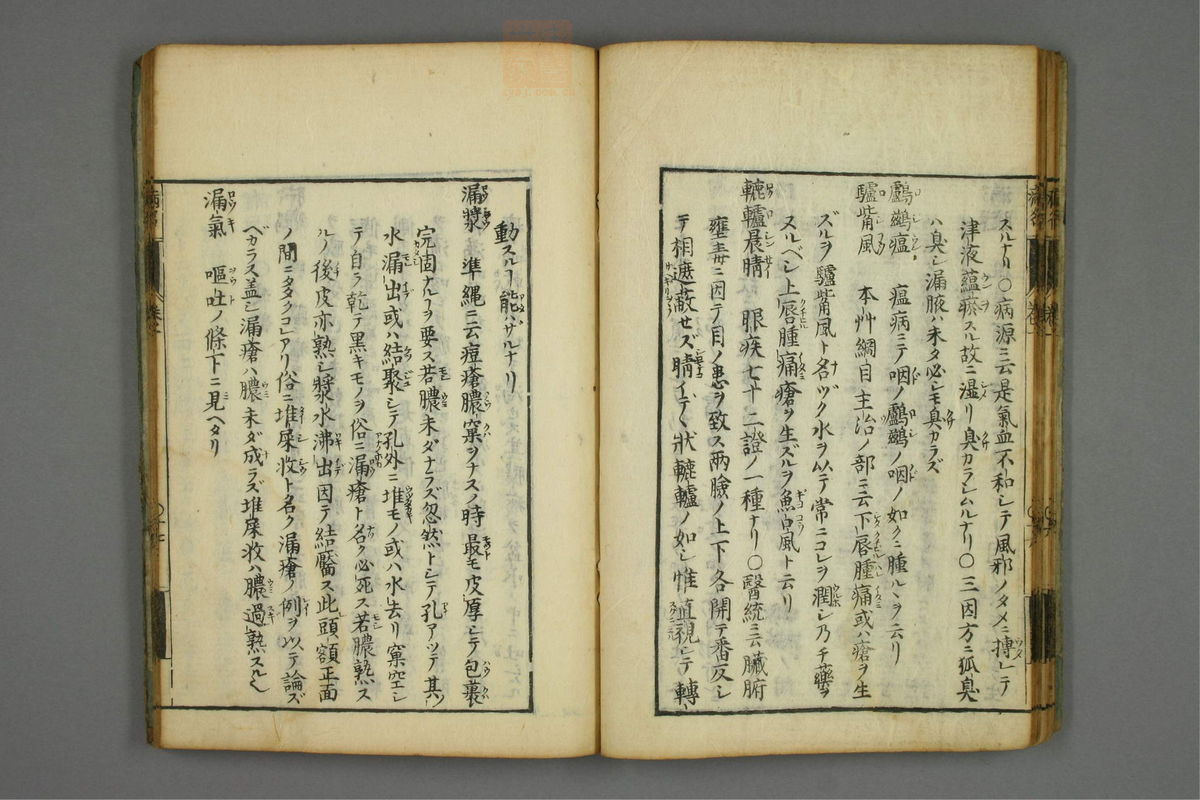 スルナリ〇病源ニ云是氣血不和シテ風邪ノタメニ搏レテ
津液蘊瘀スル故ニ湿リ臭カラシムルナリ〇三因方ニ狐臭
ハ臭シ漏腋ハ未タ必シモ臭カラズ
鸕鷀瘟 瘟病ニテ咽ノ鸕鷀ノ咽ノ如クニ腫ルヽヲ云リ
驢觜風 本艸綱目主治ノ部ニ云下唇腫痛或ハ瘡ヲ生
ズルヲ驢觜風ト名ヅク水ヲ以テ常ニコレヲ潤シ乃チ藥ヲ
ヌルベシ上唇腫痛瘡ヲ生ズルヲ魚口風ト云リ
轆轤晨睛 眼疾七十二證ノ一種ナリ〇醫統ニ云臓腑
壅毒ニ因テ目ノ患ヲ致ス两瞼ノ上下各開テ番反シ
テ相遮蔽せズ睛イデヽ狀轆轤ノ如シ惟直視シテ轉
動スルヿ能ハサルナリ
漏漿 準縄ニ云痘瘡膿窠ヲナスノ時最モ皮厚シテ包裹
完固ナルヲ要ス若膿未ダナラズ忽然トシテ孔アツテ其
水漏出或ハ結聚シテ孔外ニ堆モノ或ハ水去リ窠空シ
テ自ラ乾テ黒キモノヲ俗ニ漏瘡ト名ク必死ス若膿熟ス
ルノ後皮亦熟シ漿水沸出因テ結靨ス此頭額正面
ノ間ニタタクコレアリ俗ニ堆屎收ト名ク漏瘡ノ例ヲ以テ論ズ
ベカラス盖シ漏瘡ハ膿未ダ成ラズ堆屎收ハ膿過熟スル也
漏氣 嘔吐ノ條下ニ見ヘタリ